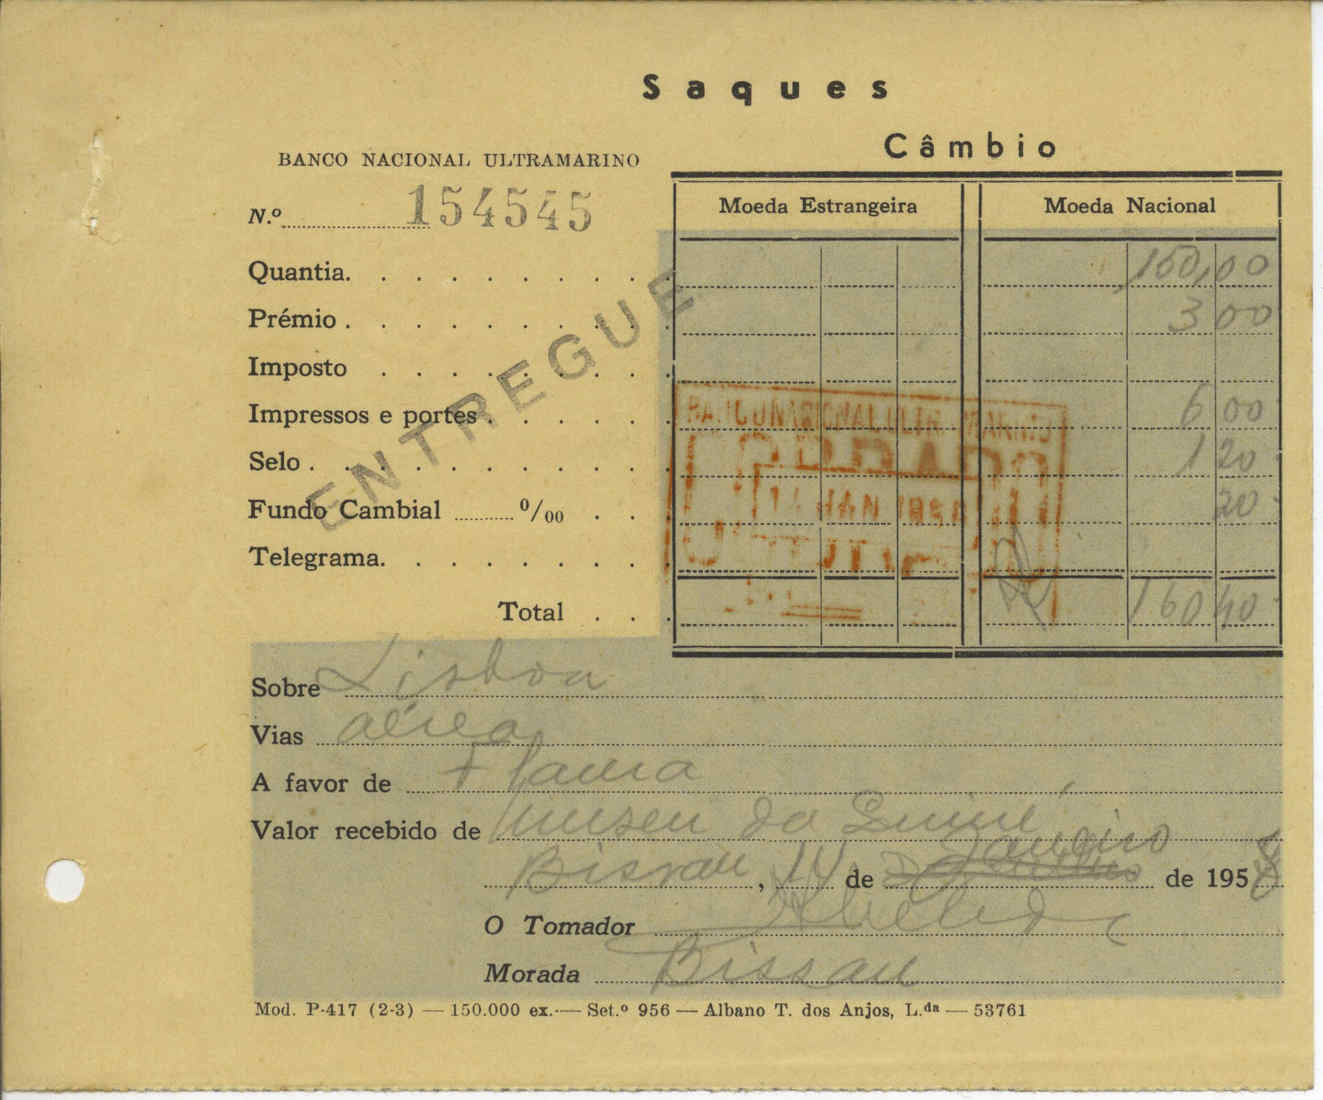 Saques
Câmbio
BANCO NACIONAL ULTRAMARINO
N.º 154545
Moeda Estrangeira Moeda Nacional
Quantia 150,00
Prémio 3 00
Imposto
Impressos e portes 6 00
Selo 1 20
Fundo Cambial º/₀₀ 20
Telegrama
Total 160 40
ENTREGUE
BANCO NACIONAL ULTRAMARINO
14 JAN 195
Sobre Lisboa
Vias aérea
A favor de
Valor recebido de Museu da Guiné
Bissau, 14 de Janeiro de 1958
O Tomador
Morada Bissau
Mod. P-417 (2-3) — 150.000 ex. — Set.º 956 — Albano T. dos Anjos, L.da — 53761